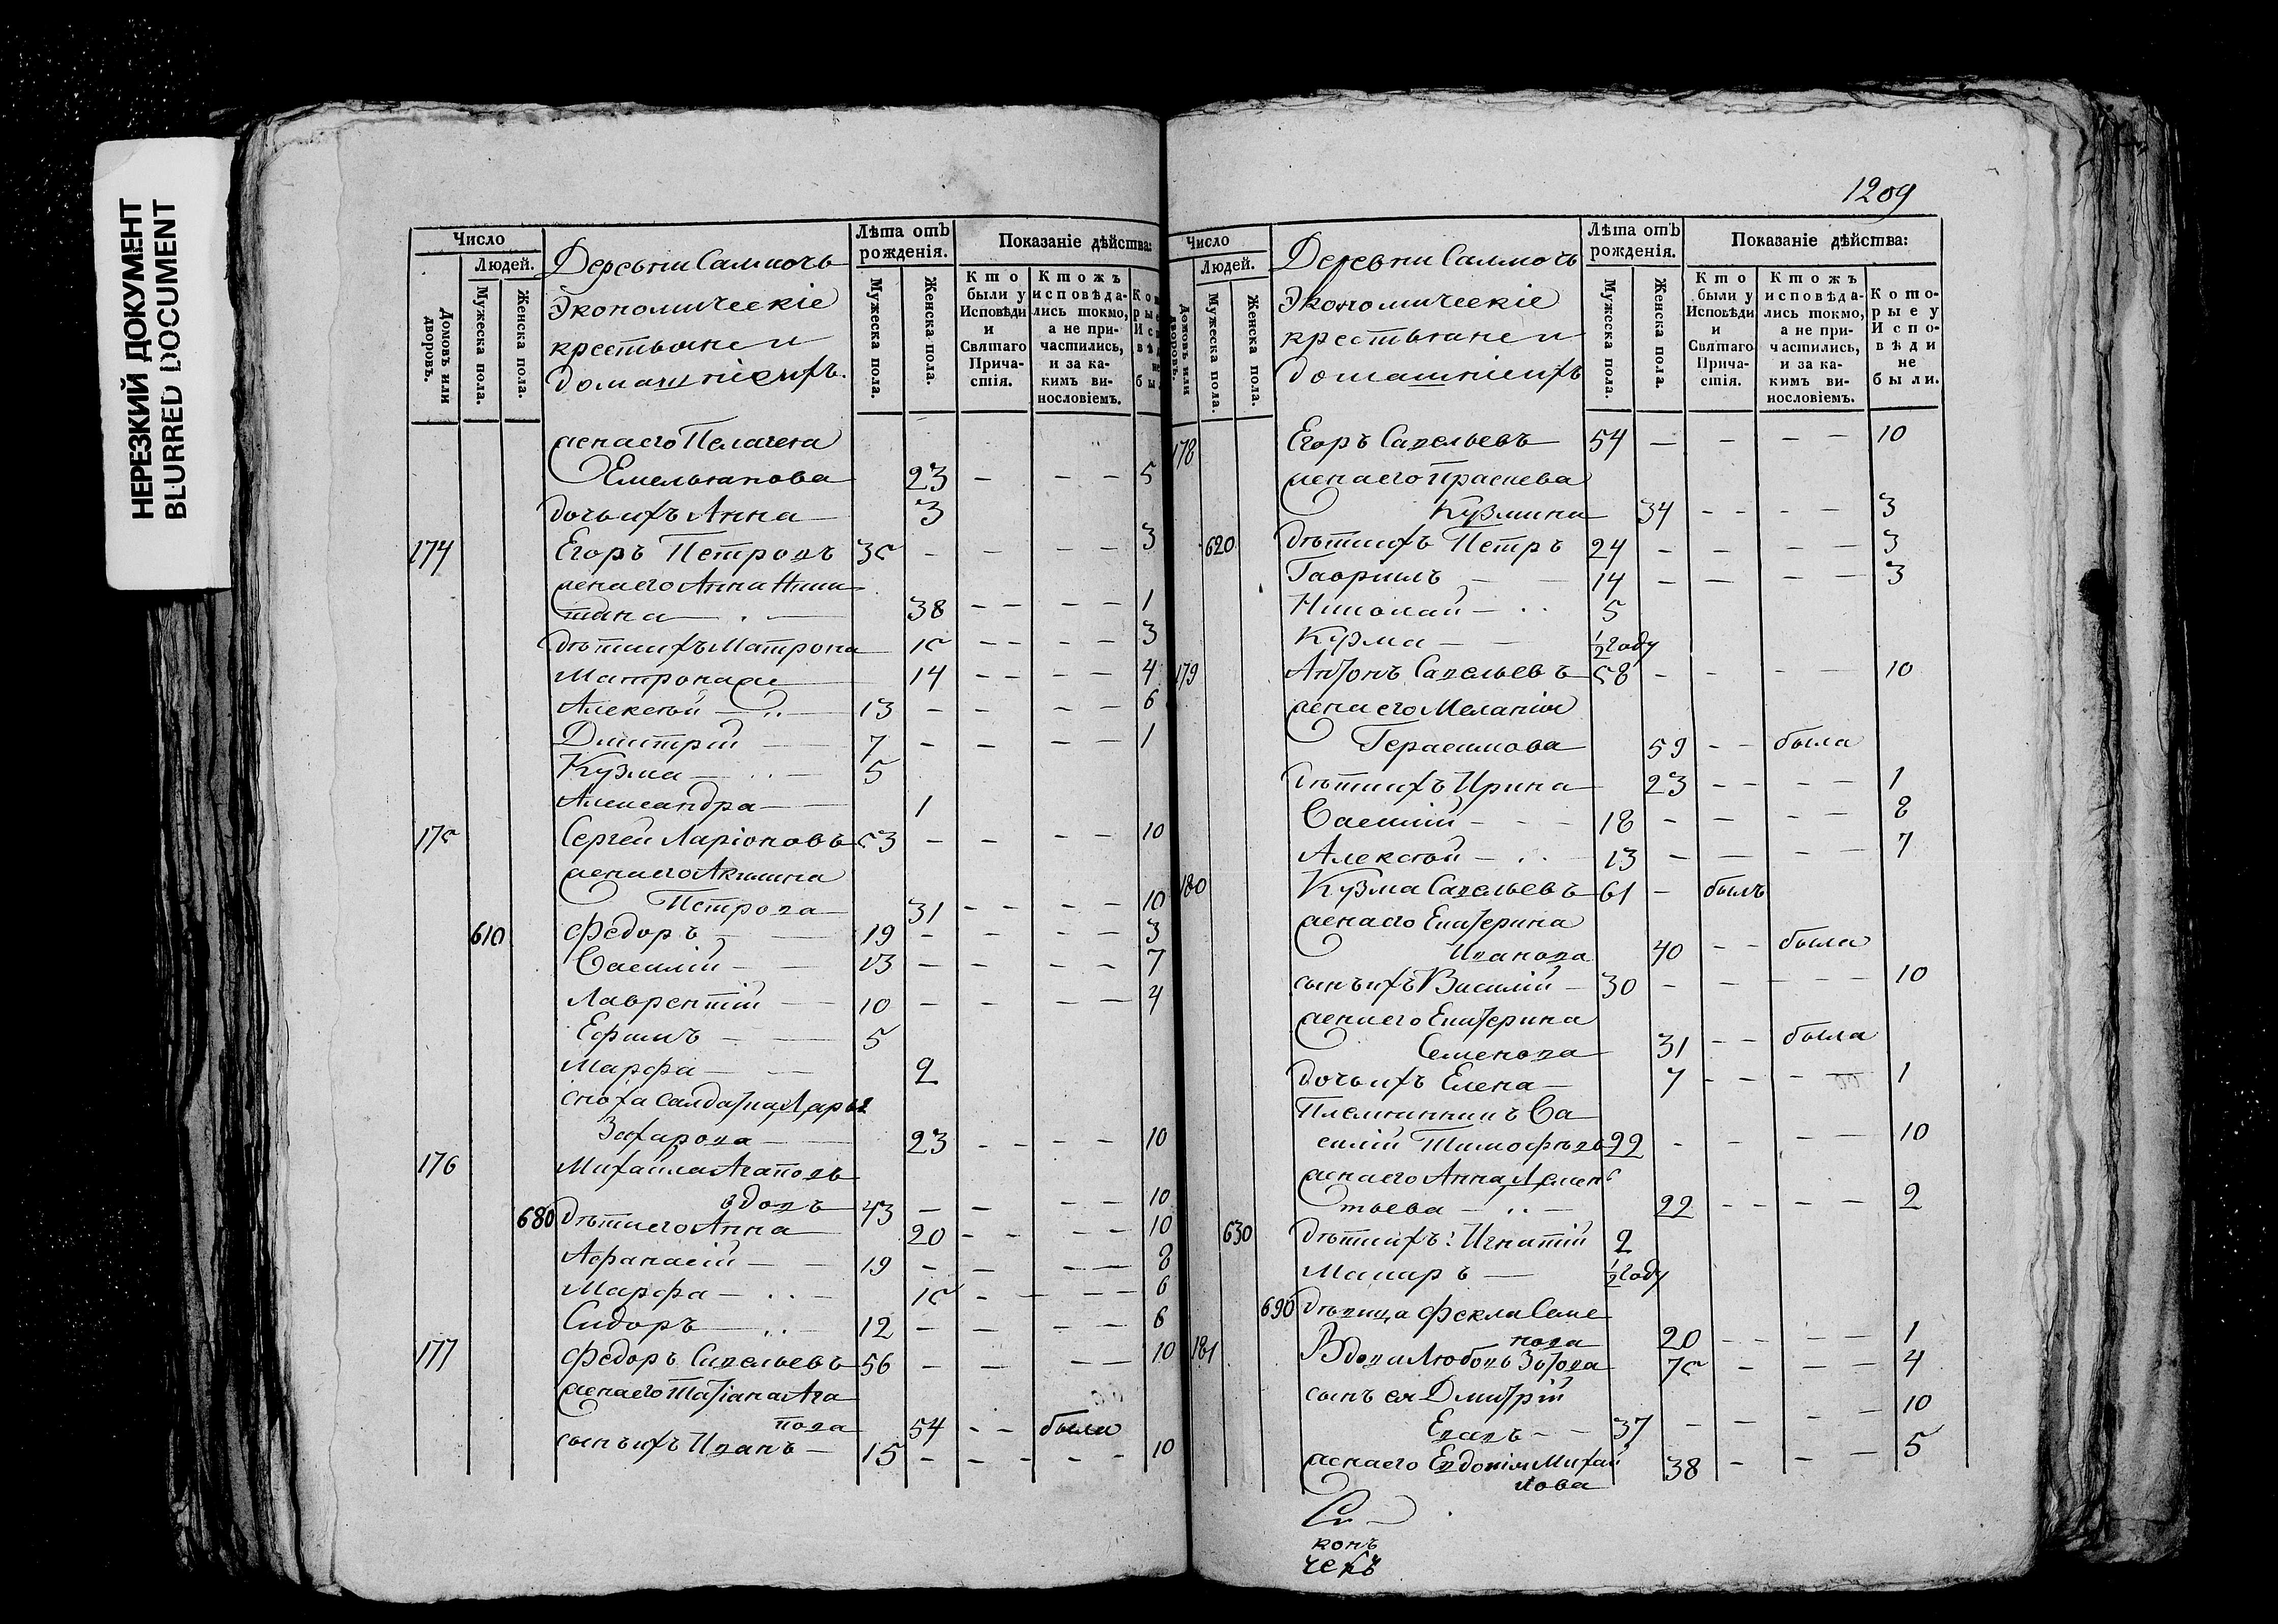 НЕРЕЗКИЙ ДОКУМЕНТ
BLURRED DOCUMENT
Число
Людей.
Домовъ или дворовъ.
Мужеска пола.
Женска пола.
Деревни
Экономическіе
крестьяне и
домашніе ихъ.
Лѣта отъ рожденія.
Мужеска пола.
Женска пола.
Показаніе дѣйства:
Кто были у Исповѣди и Святаго Прича-стія.
Ктожъ исповѣда-лись токмо, а не при-частились, и за ка-кимъ ви-нословіемъ.
жена его Пелагея
Емельянова 23 — — — 5
дочь ихъ Анна 3
174 Егоръ Петровъ 35 — — — — 3
жена его Анна Ники
тина 38 — — — — 1
дѣти ихъ Матрона 15 — — — — 3
Матрона ж 14 — — — — 4
Алексѣй 13 — — — — 6
Дмитрій 7 — — — — 1
Кузма 5
Александра 1
175 Сергей Ларіоновъ 53 — — — — 10
жена его Акилина
Петрова 31 — — — — 10
610 Федоръ 19 — — — — 3
Василій 13 — — — — 7
Лаврентій 10 — — — — 4
Ефимъ 5
Марфа 2
сноха салдатка Дарья
Захарова 23 — — — — 10
176 Михайла Агаповъ
вдовъ 43 — — — — 10
680 дѣти его Анна 20 — — — — 10
Афанасій 19 — — — — 8
Марфа 15 — — — — 6
Сидоръ 12 — — — — 6
177 Федоръ Савельевъ 56 — — — — 10
жена его Татіана Ага
пова 54 — — была
сынъ ихъ Иванъ 15 — — — — 10
1209
Число
Людей.
Домовъ или дворовъ.
Мужеска пола.
Женска пола.
Деревни
Экономическіе
крестьяне и
домашніе ихъ
Лѣта отъ рожденія.
Мужеска пола.
Женска пола.
Показаніе дѣйства:
Кто были у Исповѣди и Святаго Прича-стія.
Ктожъ исповѣда-лись токмо, а не при-частились, и за ка-кимъ ви-нословіемъ.
Кото-рые у Испо-вѣди не были.
178 Егоръ Савельевъ 54 — — — — 10
жена его Прасковя
Кузмина 34 — — — — 3
620 дѣти ихъ Петръ 24 — — — — 3
Гаврилъ 14 — — — — 3
Николай 5
Кузма 1/2 году
179 Антонъ Савельевъ 58 — — — — 10
жена его Меланія
Герасимова 59 — — была
дѣти ихъ Ирина 23 — — — 1
Василій 18 — — — — 8
Алексѣй 13 — — — — 7
180 Кузма Савельевъ 61 — былъ
жена его Екатерина
Иванова 40 — — была
сынъ ихъ Василій 30 — — — — 10
жена его Екатерина
Семенова 31 — — была
дочь ихъ Елена 7 — — — — 1
Племянникъ Ва
силій Тимофѣевъ 22 — — — — 10
жена его Анна Демен
тьева 22 — — — — 2
630 дѣти ихъ: Игнатій 2
Макаръ 1/2 году
690 дѣвица Фекла Семе
нова 20 — — — — 1
181 Вдова Любовь Зотова 75 — — — 4
сынъ ея Дмитрій
37 — — — — 10
жена его Евдокія Михай
лова 38 — — — 5